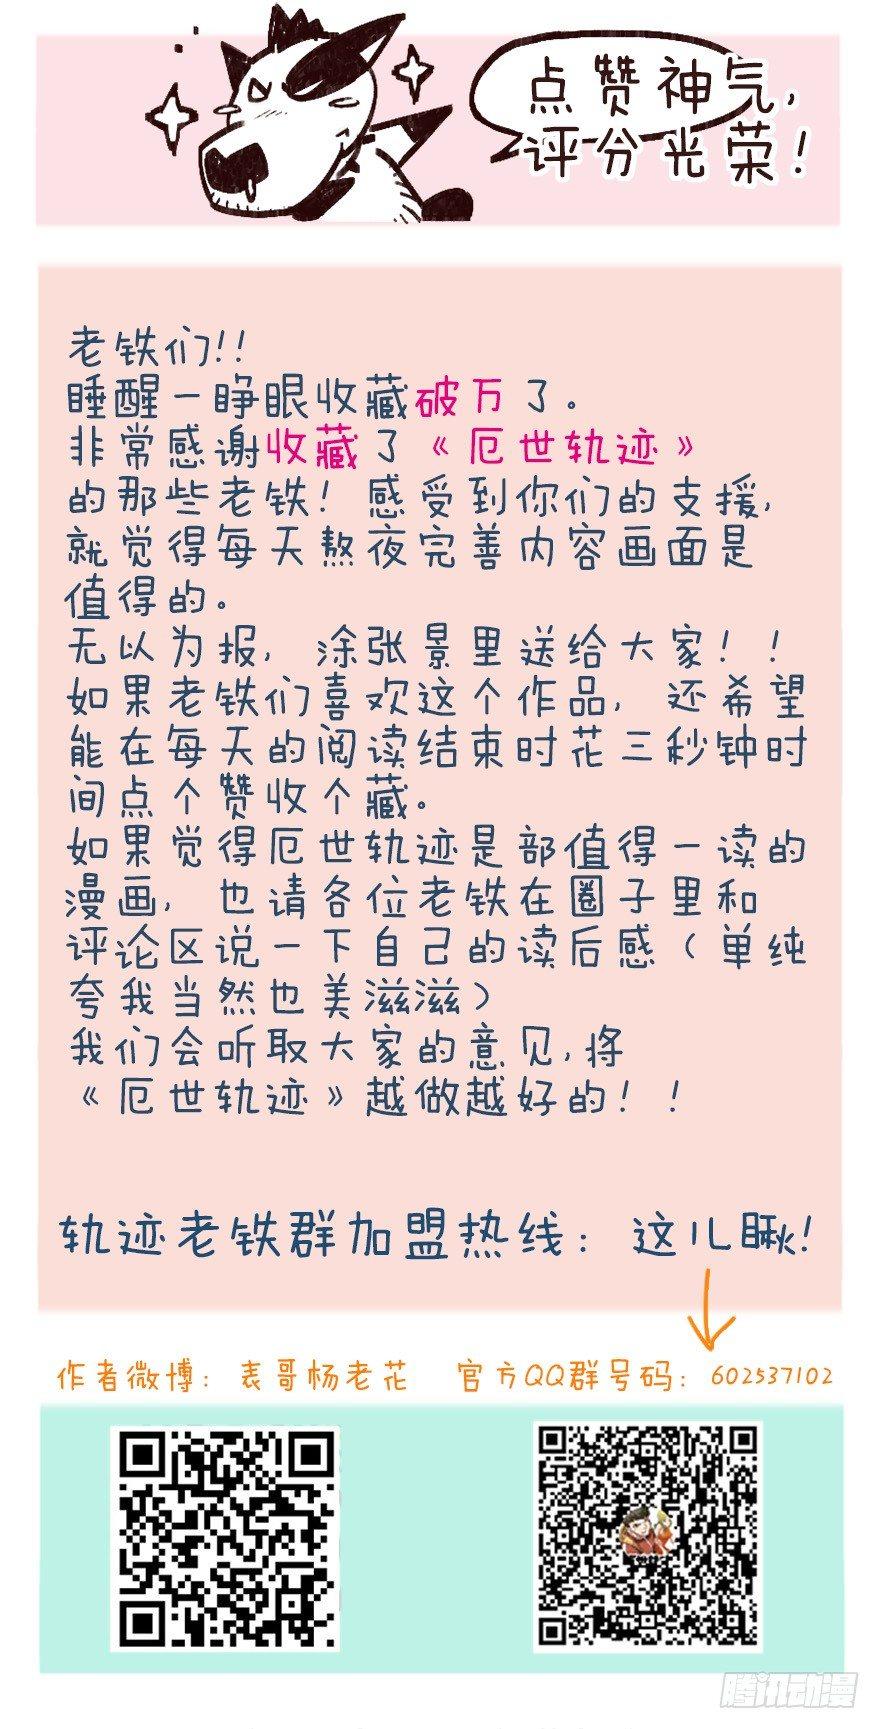 点赞神气,
评分光荣!
老铁们!!
睡醒一睁眼收藏破万了。
非常感谢收藏了《厄世轨迹》
的那些老铁! 感受到你们的支援,
就觉得每天熬夜完善内容画面是
值得的。
无以为报, 涂张景里送给大家! !
如果老铁们喜欢这个作品, 还希望
能在每天的阅读结束时花三秒钟时
间点个赞收个藏。
如果觉得厄世轨迹是部值得一读的
漫画, 也请各位老铁在圈子里和
评论区说一下自己的读后感(单纯
夸我当然也美滋滋)
我们会听取大家的意见,将
《厄世轨迹》越做越好的! !
轨迹老铁群加盟热线: 这儿瞅!
作者微博: 表哥杨老花 官方QQ群号码: 602537102
腾讯动漫